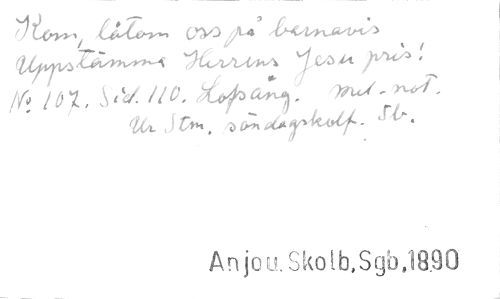 Kom, låtom oss på barnavis
Uppstämma Herrens Jesu pris!
No 107. Sid. 110. Lofsång. mel. not.
Ur Stm. söndagskolf. Sb.
Anjou. Skolb, Sgb, 1890